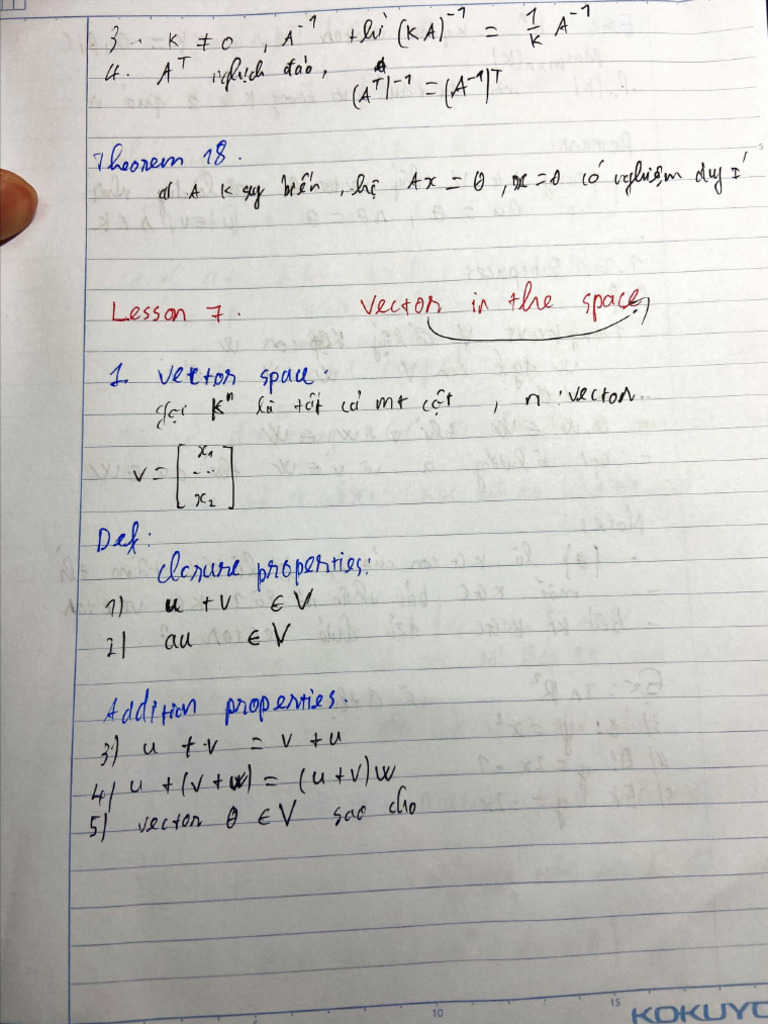 3. K ≠ 0, A⁻¹ thì (KA)⁻¹ = 1/k A⁻¹
4. Aᵀ nghịch đảo, (Aᵀ)⁻¹ = (A⁻¹)ᵀ
Theorem 18.
A K suy biến, hệ Ax = θ, x = θ có nghiệm duy I
Lesson 7. Vector in the space
1. vector space:
Gọi Kⁿ là tất cả mt cột, n: vector
v = [x₁ ... x₂]
Def:
closure properties:
1) u + v ∈ V
2) au ∈ V
Addition properties.
3) u + v = v + u
4) u + (v + w) = (u + v) w
5) vector θ ∈ V sao cho
5
10
15
KOKUYO